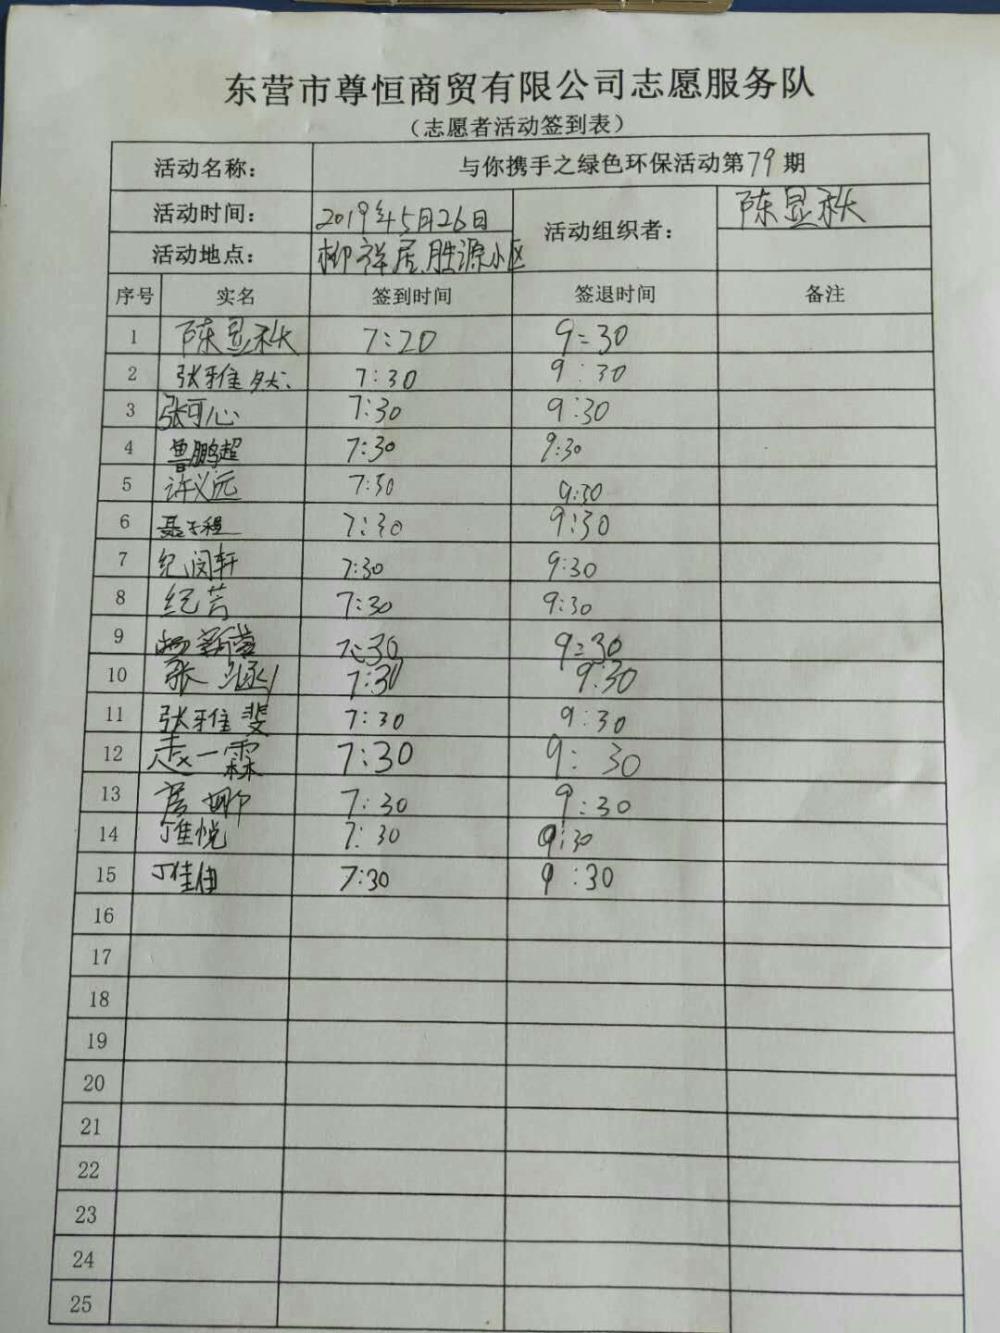 东营市尊恒商贸有限公司志愿服务队
（志愿者活动签到表）
活动名称： 与你携手之绿色环保活动第79期
活动时间： 2019年5月26日 活动组织者： 陈显秋
活动地点： 柳祥居.胜源小区
序号 实名 签到时间 签退时间 备注
1 陈显秋 7:20 9:30
2 张雅然 7:30 9:30
3 张可心 7:30 9:30
4 鲁鹏超 7:30 9:30
5 许义远 7:30 9:30
6 7:30 9:30
7 纪闵轩 7:30 9:30
8 纪芳 7:30 9:30
9 7:30 9:30
10 张 7:30 9:30
11 张雅斐 7:30 9:30
12 赵一霖 7:30 9:30
13 7:30 9:30
14 丁佳悦 7:30 9:30
15 丁佳佳 7:30 9:30
16
17
18
19
20
21
22
23
24
25